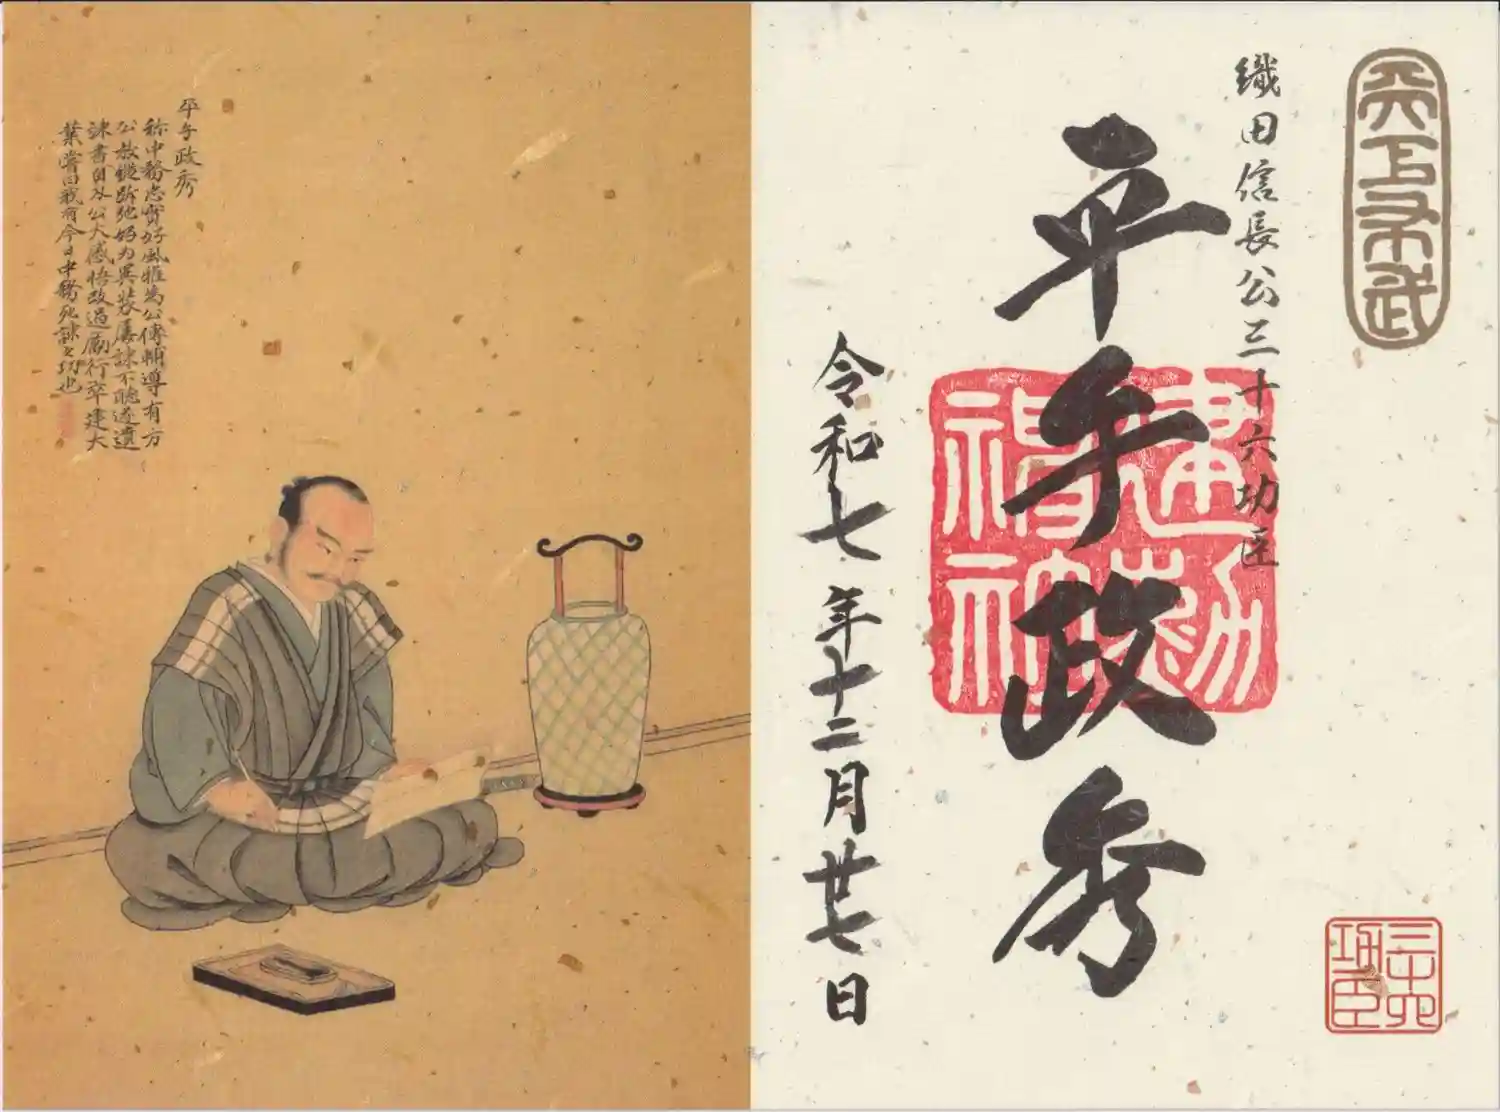 天下布武
織田信長公三十六功臣
平手政秀
建勲神社
令和七年十二月廿七日
三十六功臣
平手政秀
称中務忠實好風雅為公傅輔導有方
公放縦跅弛好為異装屡諫不聴遂遺
諫書自刃公大感悟改過勵行卒建大
業嘗曰我有今日中務死諫之功也